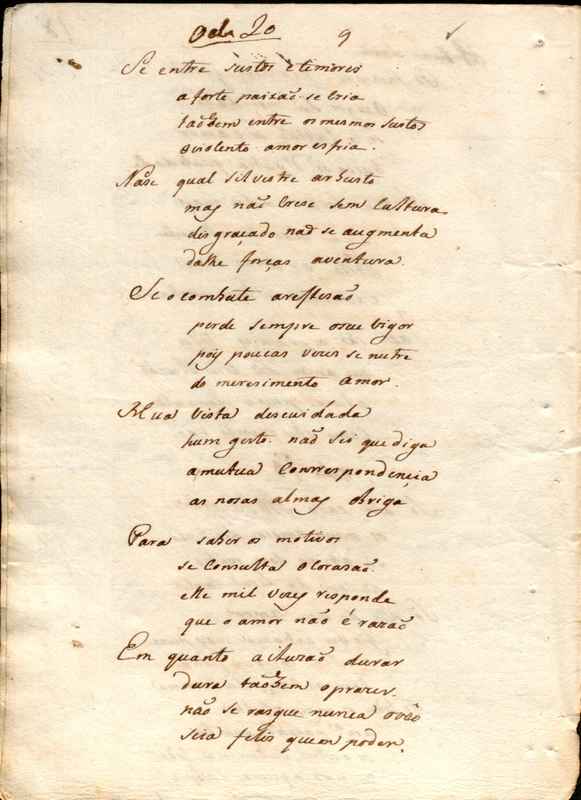 Oda 20 9
Se entre sustos etemores
aforte paixaõ se Cria
taõbem entre os mesmos sustos
oviolento amor esfria.
Nase qual silvestre arbusto
mas naõ Crese sem Cultura
desgraçado naõ se augmenta
dalhe forças aventura.
Se o combate areflexaõ
perde sempre oseu vigor
pois poucas vezes se nutre
do meresimento amor.
Hua vista descuidada
hum gesto naõ sei que diga
amutua Conrrespondençia
as nosas almas obriga
Para saber os motivos
se Consulta oCorasaõ
elle mil vezes responde
que o amor não é razaõ
Em quanto ailuzaõ durar
dura taõbem oprazer.
não se rasgue nunca ovéo
seia felis quem poder.